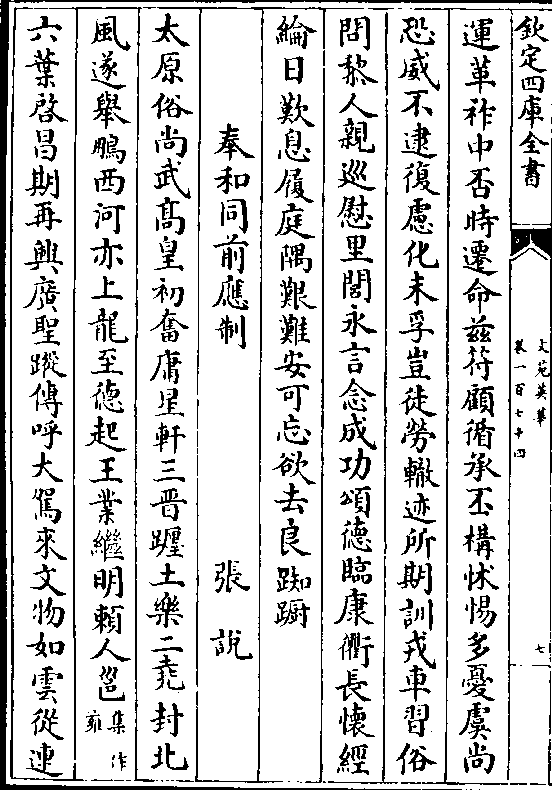 欽定四庫全書
文苑英華
卷一百七十四
七
運革祚中否時遷命茲符顧循承丕構怵惕多憂虞尚
恐威不逮復慮化未孚豈徒勞轍迹所期訓戎車習俗
問黎人親巡慰里閭永言念成功頌德臨康衢長懷經
綸日歎息履庭隅艱難安可忘欲去良踟蹰
奉和同前應制　張說
太原俗尚武髙皇初奮庸星軒三晋躔土樂二堯封北
風遂舉鵬西河亦上龍至德起王業繼明賴人邕集作雍
六葉啓昌期再興廣聖蹤傳呼大駕來文物如雲從連